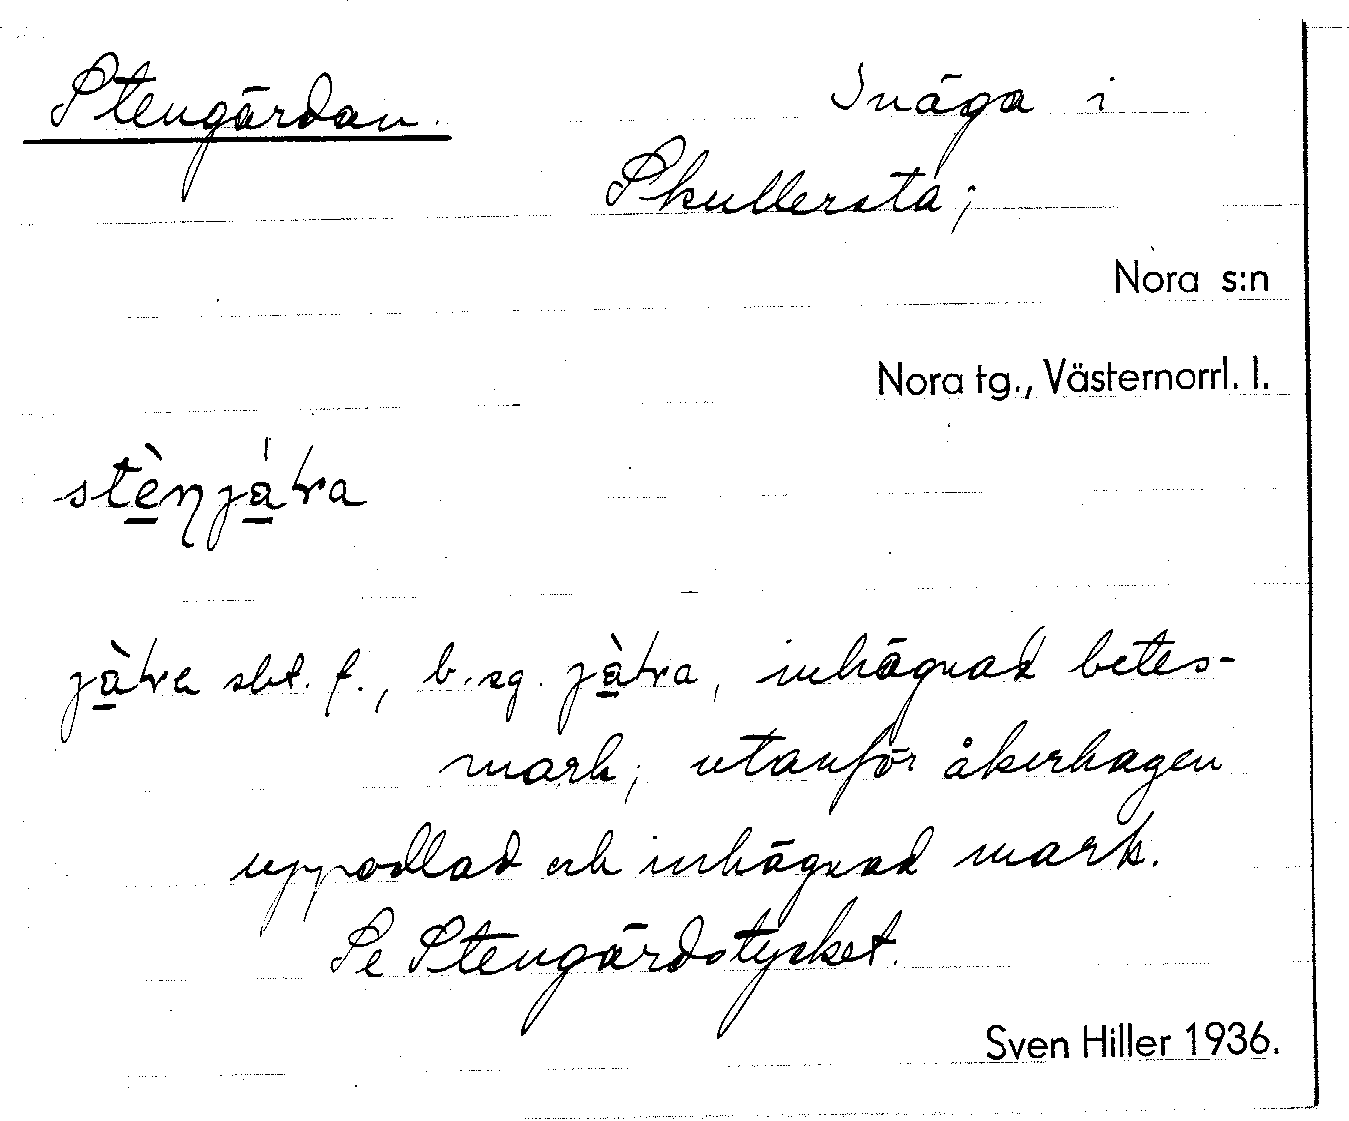 Stengärdan.
Inäga i
Skullersta;
Nora s:n
Nora tg., Västernorrl. l.
stè̱ŋjá̱ƚra
jà̱ƚra sbt. f., b. sg. jà̱ƚra, inhägnad betes-
mark; utanför åkerhagen
uppodlad och inhägnad mark.
Se Stengärdstycket.
Sven Hiller 1936.